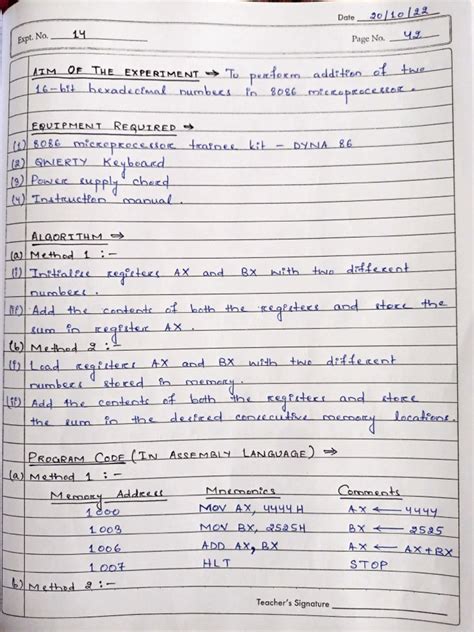 Date 20/10/22
Expt. No. 14
Page No. 42
AIM OF THE EXPERIMENT → To perform addition of two
16-bit hexadecimal numbers in 8086 microprocessor.
EQUIPMENT REQUIRED →
(1) 8086 microprocessor trainer kit - DYNA 86
(2) QWERTY Keyboard
(3) Power supply chord
(4) Instruction manual.
ALGORITHM →
(a) Method 1 :-
(i) Initialise registers AX and BX with two different
numbers.
(ii) Add the contents of both the registers and store the
sum in register AX.
(b) Method 2 :-
(i) Load registers AX and BX with two different
numbers stored in memory.
(ii) Add the contents of both the registers and store
the sum in the desired consecutive memory locations.
PROGRAM CODE (IN ASSEMBLY LANGUAGE) →
(a) Method 1 :-
Memory Address Mnemonics Comments
1000 MOV AX, 4444H AX ← 4444
1003 MOV BX, 2525H BX ← 2525
1006 ADD AX, BX AX ← AX+BX
1007 HLT STOP
b) Method 2 :-
Teacher's Signature